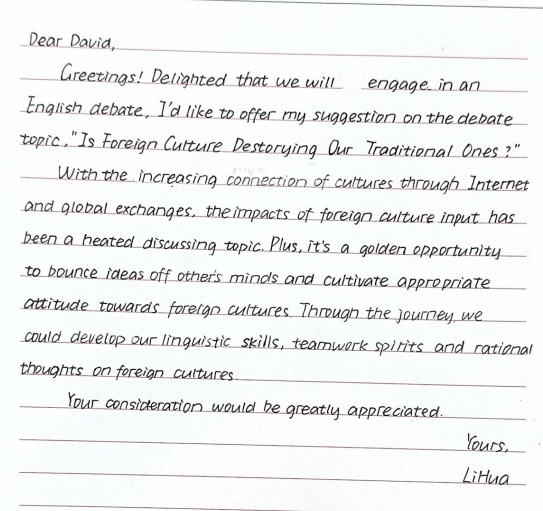 Dear David,
Greetings! Delighted that we will engage in an
English debate, I'd like to offer my suggestion on the debate
topic, "Is Foreign Culture Destorying Our Traditional Ones?"
With the increasing connection of cultures through Internet
and global exchanges, the impacts of foreign culture input has
been a heated discussing topic. Plus, it's a golden opportunity
to bounce ideas off other's minds and cultivate appropriate
attitude towards foreign cultures. Through the journey, we
could develop our linguistic skills, teamwork spirits and rational
thoughts on foreign cultures.
Your consideration would be greatly appreciated.
Yours,
LiHua